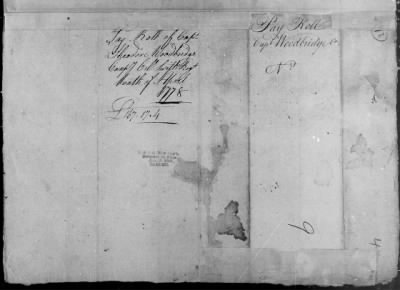 Pay Roll of Capt
Theodore Woodbridge
Compy Coll Swifts Regt
Month of April
1778
£67.17.4
Pay Roll
Capt Woodbridge Co
No
9
4